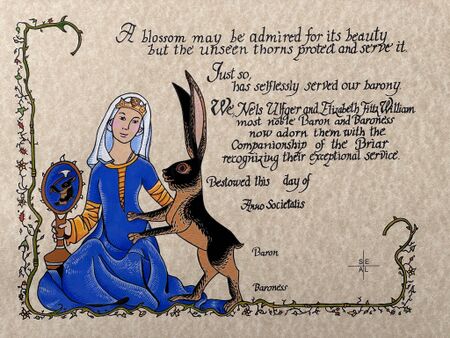 A blossom may be admired for its beauty
but the unseen thorns protect and serve it.
Just so,
has selflessly served our barony.
We, Nels Ulfger and Elizabeth Fitz William
most noble Baron and Baroness
now adorn them with the
Companionship of the Briar
recognizing their exceptional service.
Bestowed this day of
Anno Societatis
Baron
S E
A L
Baroness